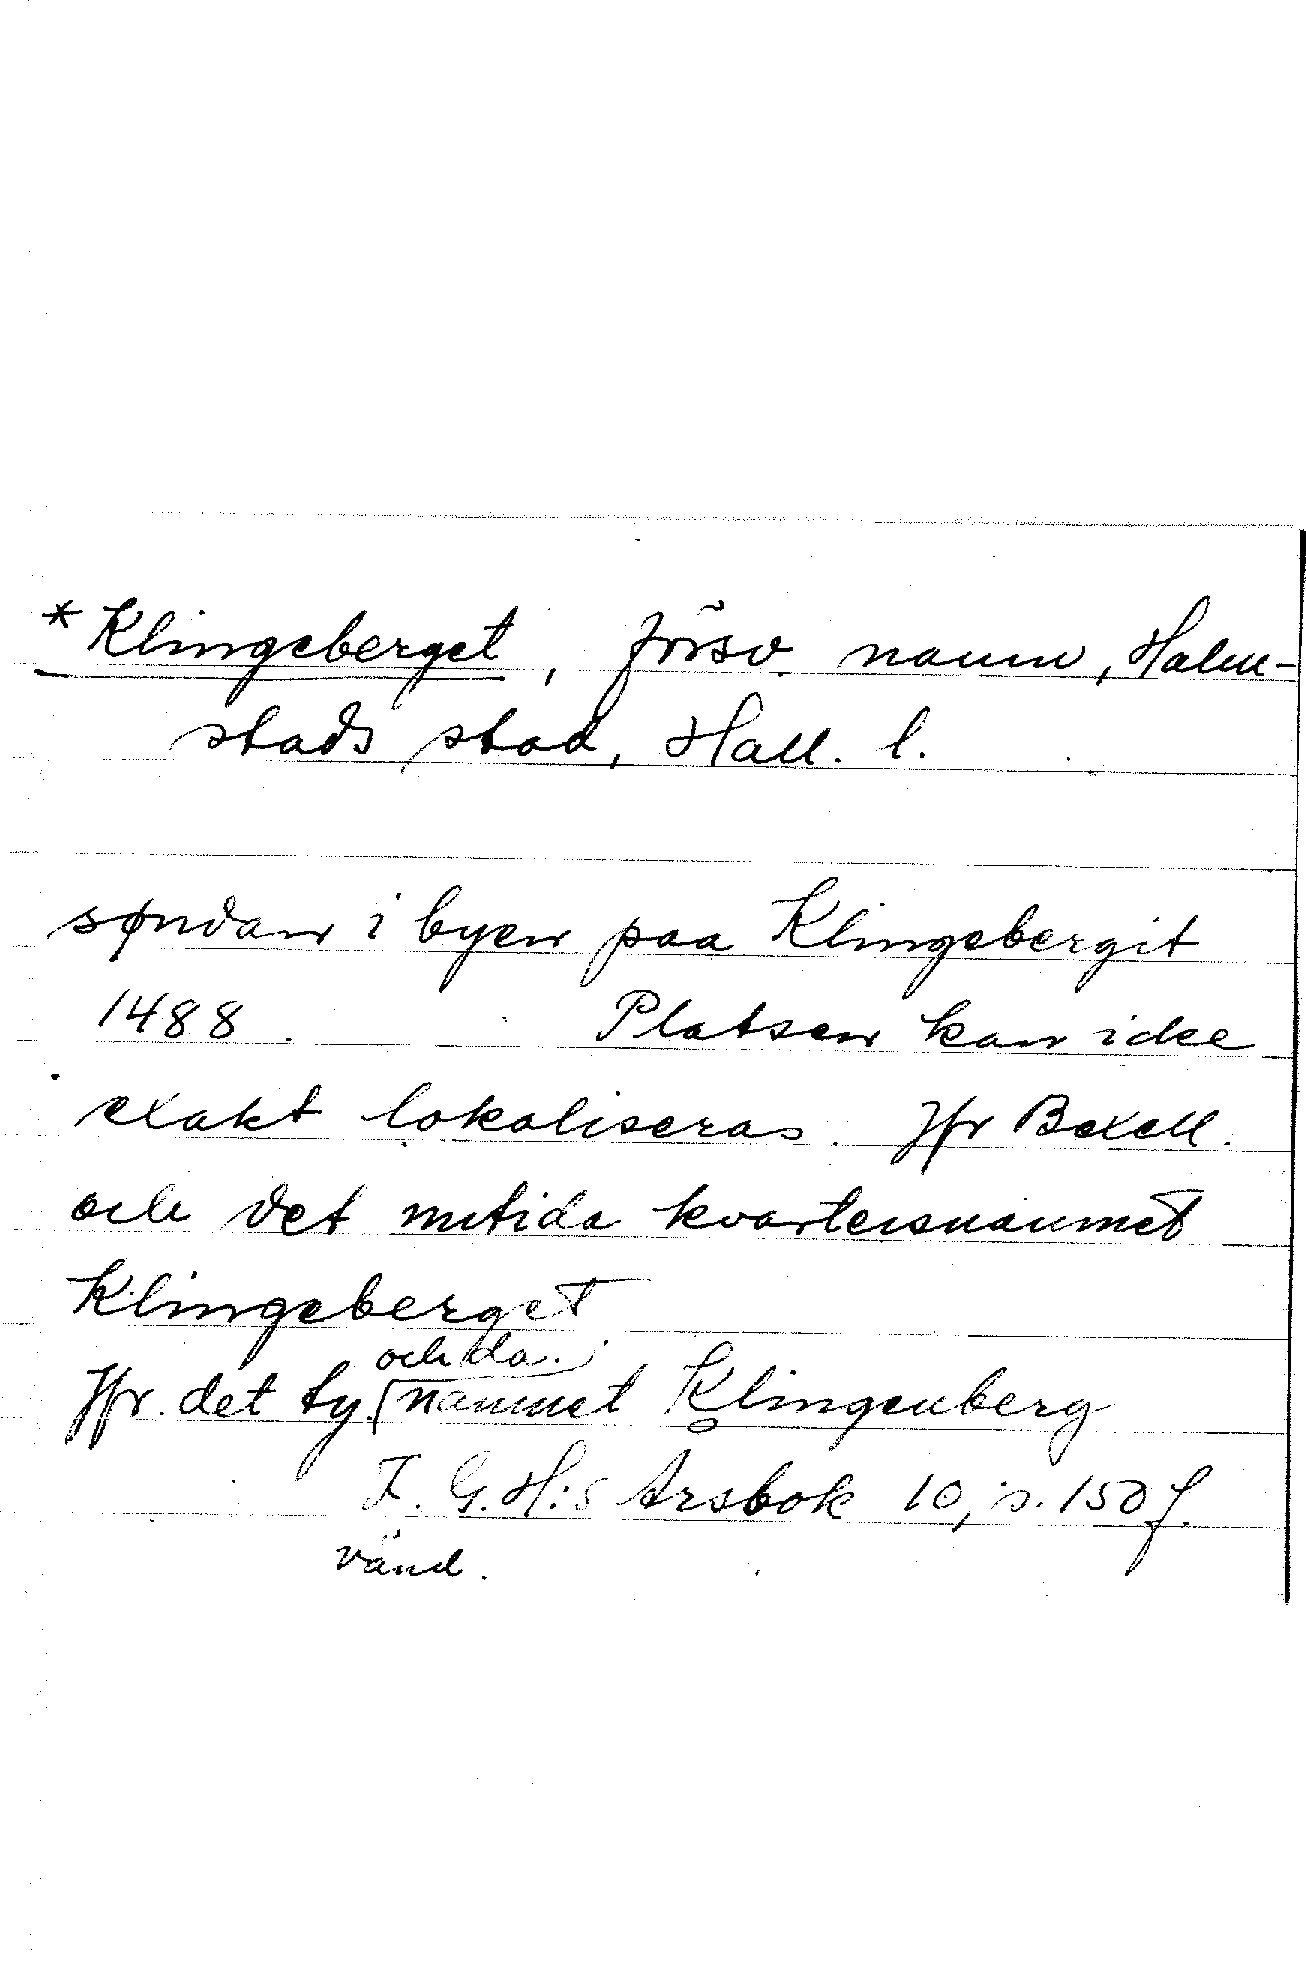 *Klingeberget, försv. namn, Halm-
stads stad, Hall. l.
søndan i byen paa Klingebergit
1488. Platsen kan icke
exakt lokaliseras. Jfr Bexell.
och det nutida kvartersnamnet
Klingeberget
och da.
Jfr. det ty. namnet Klingenberg
F. G. H:s Årsbok 10, s. 150 f.
vänd.